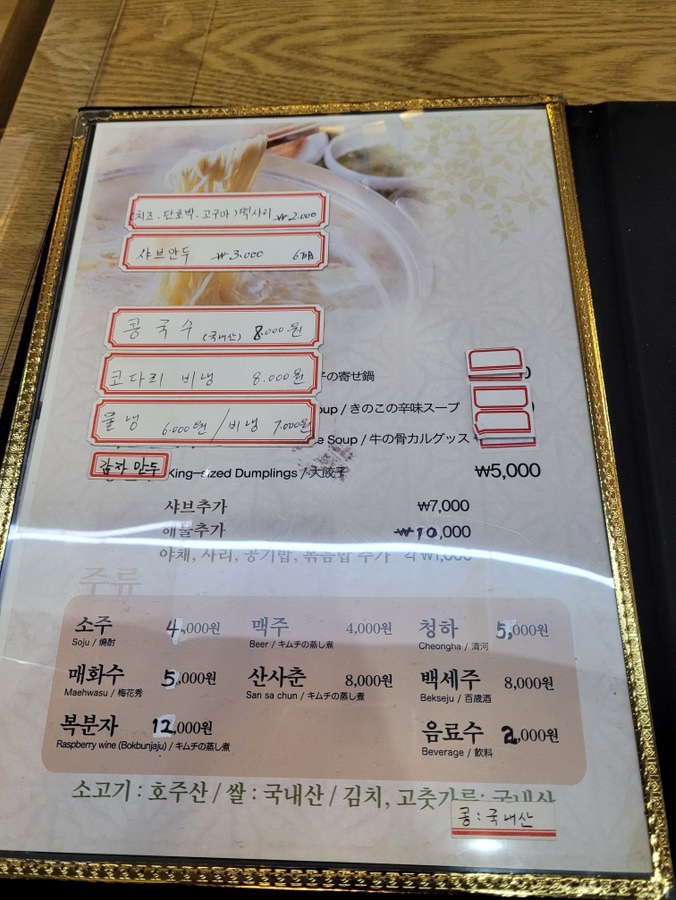 (치즈.단호박.고구마)떡사리 ₩2.000
샤브만두 ₩3.000
콩국수 (국내산) 8.000원
코다리 비냉 8.000원
の寄せ鍋
물냉 6.000원 / 비냉 7.000원
oup / きのこの辛味スープ
e Soup / 牛の骨カルグッス
감자만두 King-sized Dumplings / 大餃子 ₩5,000
샤브추가 ₩7,000
해물추가 ₩10,000
야채, 사리, 공기밥, 볶음밥 추가 각 ₩1,000
주류
소주 4,000원 맥주 4,000원 청하 5,000원
Soju / 焼酎 Beer / キムチの蒸し煮 Cheongha / 清河
매화수 5,000원 산사춘 8,000원 백세주 8,000원
Maehwasu / 梅花秀 San sa chun / キムチの蒸し煮 Bekseju / 百歳酒
복분자 12,000원 음료수 2,000원
Raspberry wine (Bokbunjaju) / キムチの蒸し煮 Beverage / 飲料
소고기 : 호주산 / 쌀 : 국내산 / 김치, 고춧가루: 국내산
콩 : 국내산